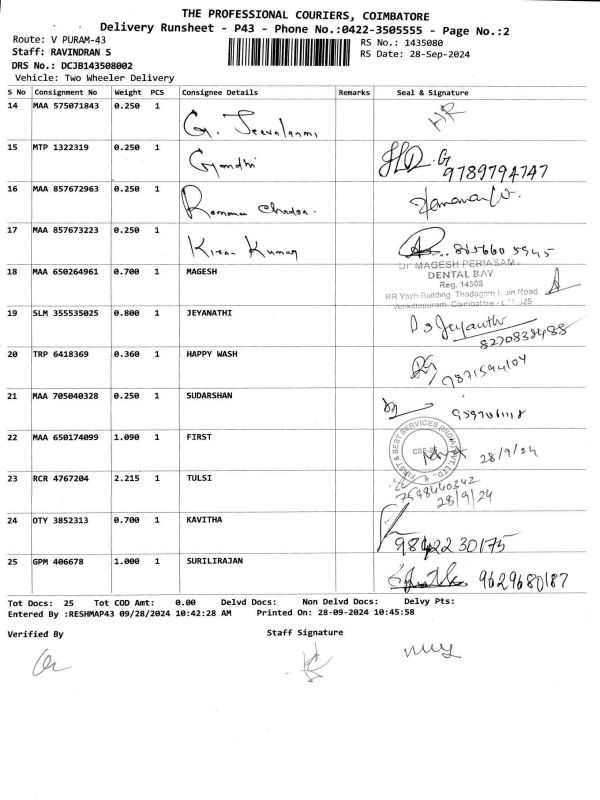 THE PROFESSIONAL COURIERS, COIMBATORE
Delivery Runsheet - P43 - Phone No.:0422-3505555 - Page No.:2
Route: V PURAM-43
RS No.: 1435080
Staff: RAVINDRAN S
RS Date: 28-Sep-2024
DRS No.: DCJB143508002
Vehicle: Two Wheeler Delivery
S No Consignment No Weight PCS Consignee Details Remarks Seal & Signature
14 MAA 575071843 0.250 1 G. Jeevalaxmi HR
15 MTP 1322319 0.250 1 Gandhi G 9789794747
16 MAA 857672963 0.250 1
17 MAA 857673223 0.250 1 Kiran Kumar
18 MAA 650264961 0.700 1 MAGESH
Dr MAGESH PERIASAMI
DENTAL BAY
Reg. 14508
RR Yazh Building, Thadagam Main Road
19 SLM 355535025 0.800 1 JEYANATHI
8270838488
20 TRP 6418369 0.360 1 HAPPY WASH 9871594104
21 MAA 705040328 0.250 1 SUDARSHAN
22 MAA 650174099 1.090 1 FIRST
FIRST & BEST SERVICES (INDIA) PVT. LTD.
28/9/24
23 RCR 4767204 2.215 1 TULSI
28/9/24
24 OTY 3852313 0.700 1 KAVITHA 9842230175
25 GPM 406678 1.000 1 SURILIRAJAN 9629680187
Tot Docs: 25 Tot COD Amt: 0.00 Delvd Docs: Non Delvd Docs: Delvy Pts:
Entered By :RESHMAP43 09/28/2024 10:42:28 AM Printed On: 28-09-2024 10:45:58
Verified By
Staff Signature